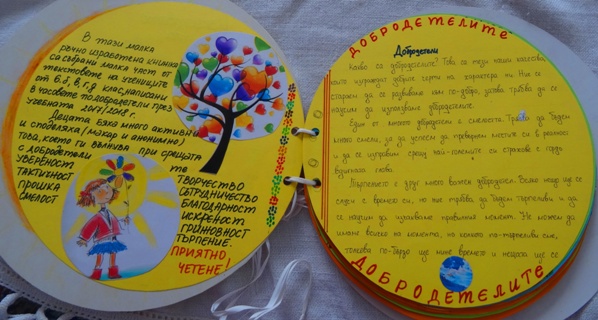 В тази малка
ръчно изработена книжка
са събрани малка част от
текстовете на учениците
от 6.б, в, г, д клас, написани
в часовете по добродетели през
учебната 2017/2018 г.
Децата бяха много активни
и споделяха (макар и анонимно)
това, което ги вълнува при срещата
с добродетелите
УВЕРЕНОСТ
ТАКТИЧНОСТ
ПРОШКА
СМЕЛОСТ
ТВОРЧЕСТВО
СЪТРУДНИЧЕСТВО
БЛАГОДАРНОСТ
ИСКРЕНОСТ
ГРИЖОВНОСТ
ТЪРПЕНИЕ.
ПРИЯТНО
ЧЕТЕНЕ!
ДОБРОДЕТЕЛИТЕ
Добродетели
Какво са добродетелите? Това са тези наши качества,
които изграждат добрите черти на характера ни. Ние се
стараем да се развиваме към по-добро, затова трябва да се
научим да използваме добродетелите.
Една от многото добродетели е смелостта. Трябва да бъдем
много смели, за да успеем да превърнем мислите си в реалност
и да се изправим срещу най-големите си страхове с гордо
вдигната глава.
Търпението е друга много важна добродетел. Всяко нещо ще се
случи с времето си, но ние трябва да бъдем търпеливи и да
се научим да изчакваме правилния момент. Не можем да
имаме всичко на момента, но колкото по-търпеливи сме,
толкова по-бързо ще мине времето и нещата ще се
ДОБРОДЕТЕЛИТЕ